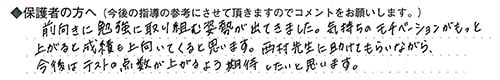 ◆保護者の方へ(今後の指導の参考にさせて頂きますのでコメントをお願いします。)
前向きに勉強に取り組む姿勢が出てきました。気持ちのモチベーションがもっと
上がると成績も上向いてくると思います。西村先生に助けてもらいながら、
今後はテストの点数が上がるよう期待したいと思います。